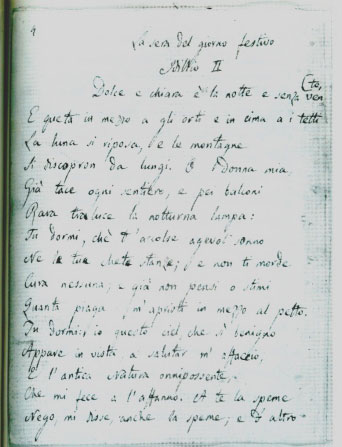 4
La sera del giorno festivo
Idillio II
Dolce e chiara è la notte e senza ven
(to,
E queta in mezzo a gli orti e in cima a i tetti
La luna si riposa, e le montagne
Si discopron da lungi. O Donna mia,
Già tace ogni sentiero, e pei balconi
Rara traluce la notturna lampa:
Tu dormi, chè t'accolse agevol sonno
Ne le tue chete stanze; e non ti morde
Cura nessuna; e già non pensi o stimi
Quanta piaga m'apristi in mezzo al petto.
Tu dormi: io questo ciel, che sì benigno
Appare in vista, a salutar m'affaccio,
E l'antica Natura onnipossente,
Che mi fece a l'affanno. A te la speme
Nego, mi disse, anche la speme; e d'altro